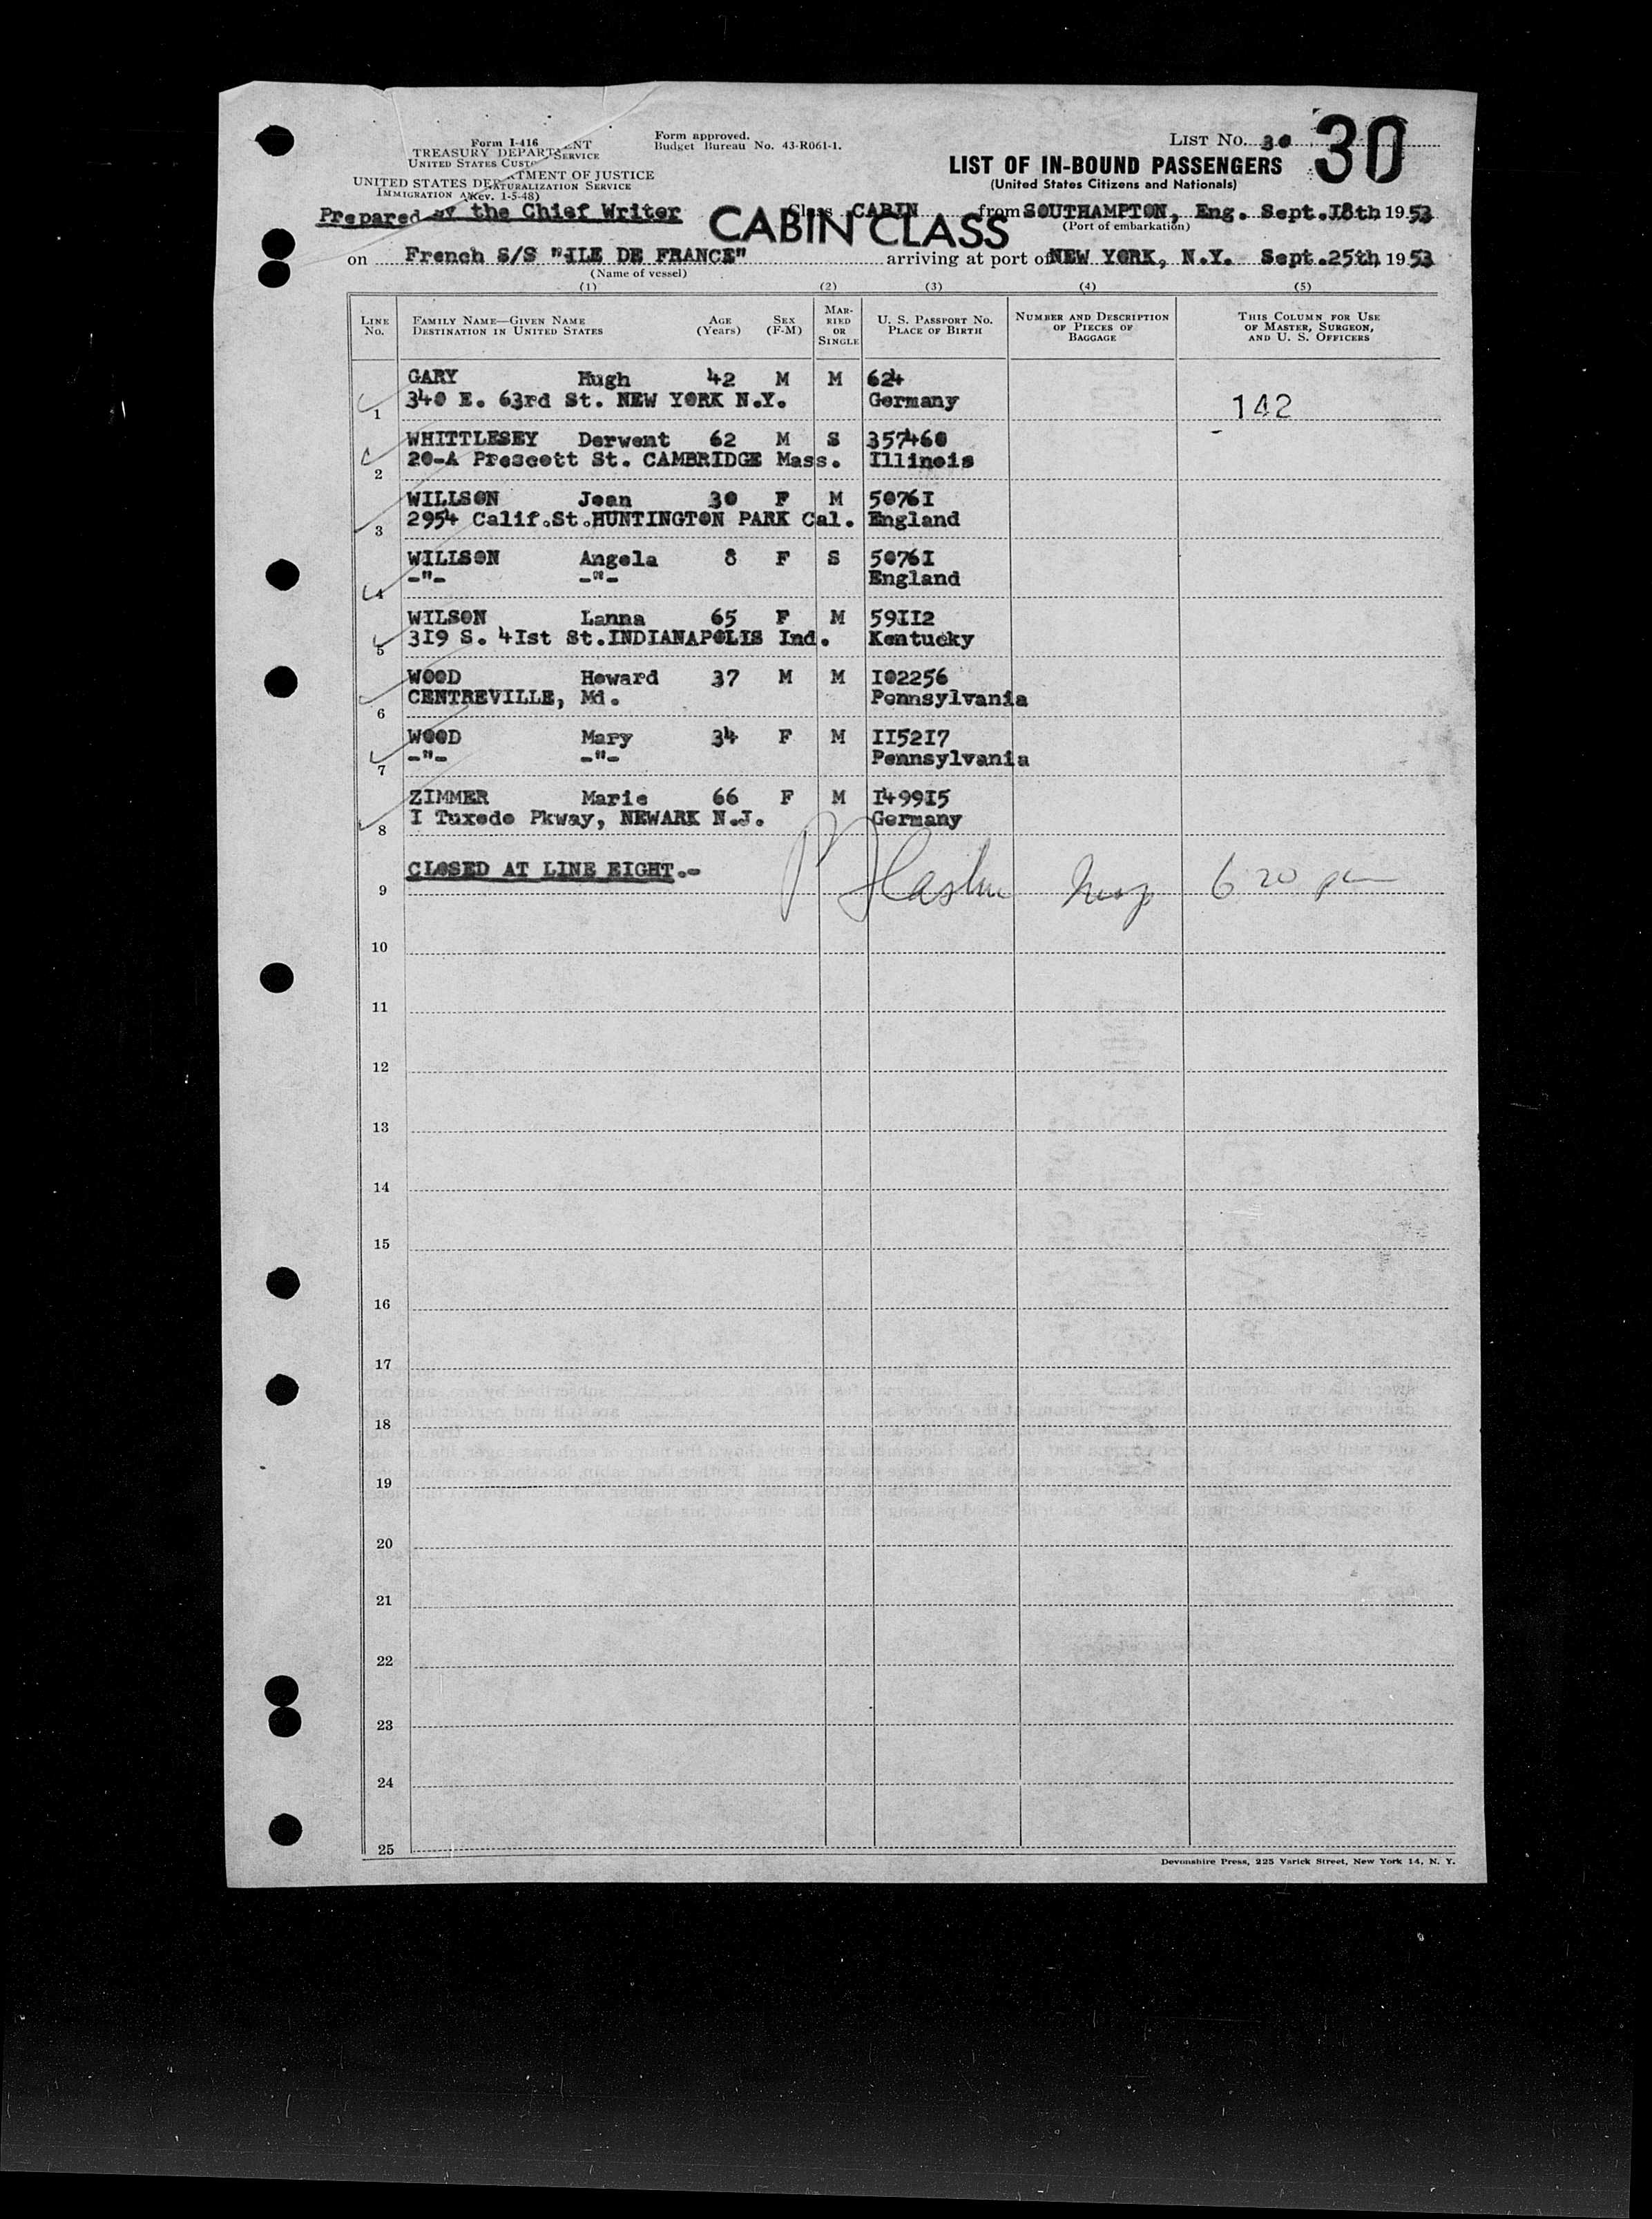 Form I-416
TREASURY DEPARTMENT
UNITED STATES CUSTOMS SERVICE
UNITED STATES DEPARTMENT OF JUSTICE
IMMIGRATION AND NATURALIZATION SERVICE
(Rev. 1-5-48)
Form approved.
Budget Bureau No. 43-R061-1.
LIST No. 30 30
LIST OF IN-BOUND PASSENGERS
(United States Citizens and Nationals)
Prepared by the Chief Writer
CABIN CLASS
Class CABIN from SOUTHAMPTON, Eng. Sept.I8th 1953
(Port of embarkation)
on French S/S "ILE DE FRANCE" arriving at port of NEW YORK, N.Y. Sept.25th 1953
(Name of vessel)
(1) (2) (3) (4) (5)
LINE No. FAMILY NAME—GIVEN NAME DESTINATION IN UNITED STATES AGE (Years) SEX (F-M) MARRIED OR SINGLE U. S. PASSPORT NO. PLACE OF BIRTH NUMBER AND DESCRIPTION OF PIECES OF BAGGAGE THIS COLUMN FOR USE OF MASTER, SURGEON, AND U. S. OFFICERS
GARY Hugh 42 M M 624
1 340 E. 63rd St. NEW YORK N.Y. Germany 142
WHITTLESEY Derwent 62 M S 357460
2 20-A Prescott St. CAMBRIDGE Mass. Illinois
WILLSON Jean 30 F M 5076I
3 2954 Calif.St.HUNTINGTON PARK Cal. England
WILLSON Angela 8 F S 5076I
4 -"- -"- England
WILSON Lanna 65 F M 59II2
5 3I9 S. 4Ist St.INDIANAPOLIS Ind. Kentucky
WOOD Howard 37 M M I02256
6 CENTREVILLE, Md. Pennsylvania
WOOD Mary 34 F M II52I7
7 -"- -"- Pennsylvania
ZIMMER Marie 66 F M I499I5
8 I Tuxedo Pkway, NEWARK N.J. Germany
CLOSED AT LINE EIGHT.-
9 6 20 pm
10
11
12
13
14
15
16
17
18
19
20
21
22
23
24
25
Devonshire Press, 225 Varick Street, New York 14, N. Y.